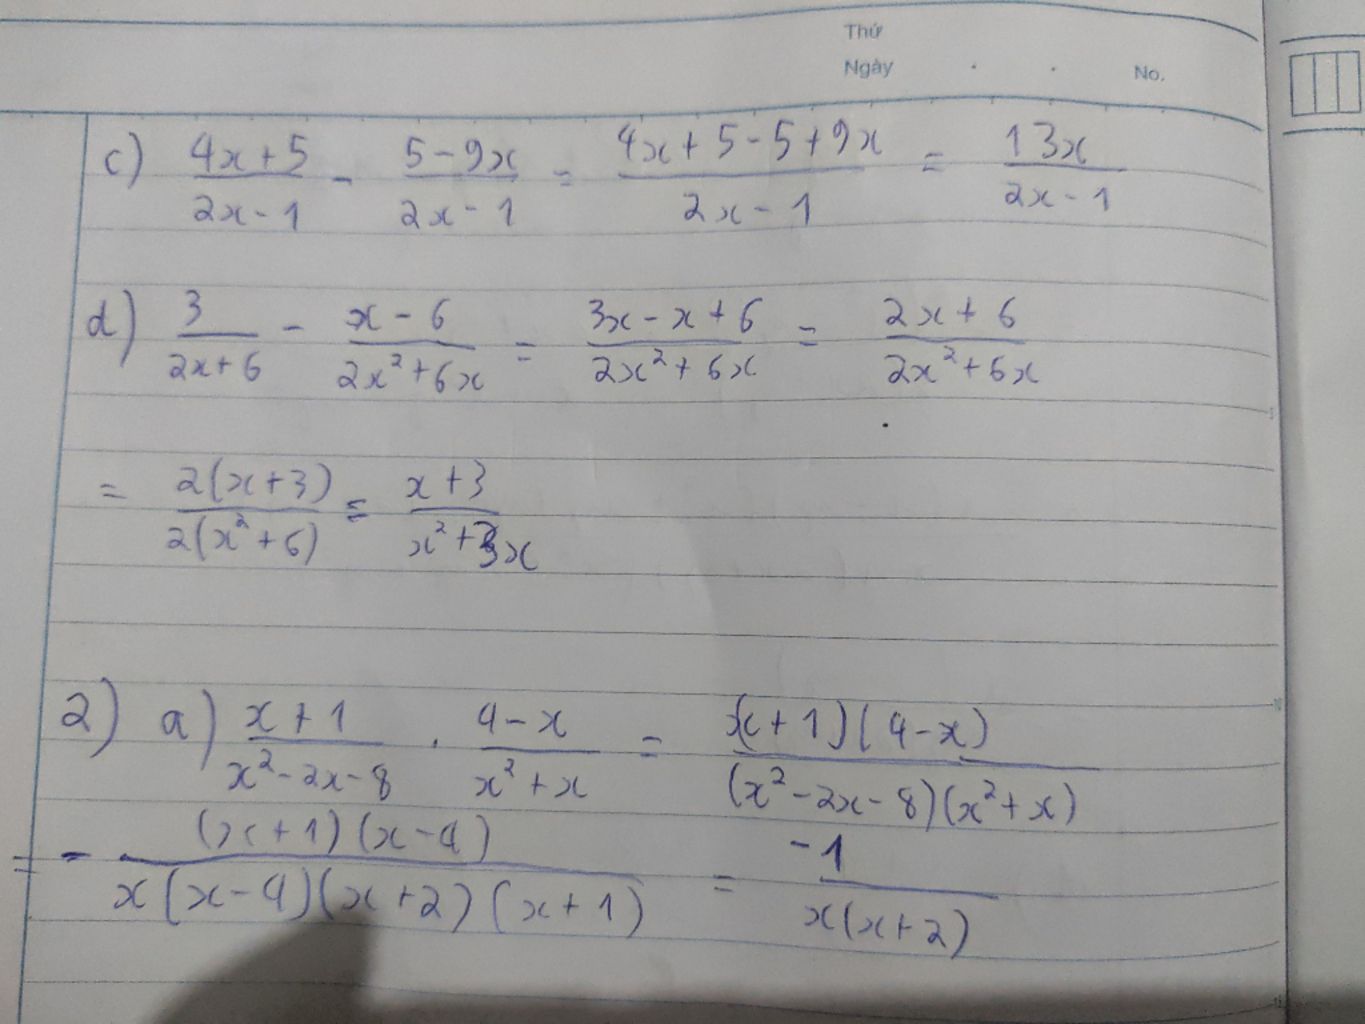 Thứ
Ngày . . No.
c) \frac{4x+5}{2x-1} - \frac{5-9x}{2x-1} = \frac{4x+5-5+9x}{2x-1} = \frac{13x}{2x-1}
d) \frac{3}{2x+6} - \frac{x-6}{2x²+6x} = \frac{3x-x+6}{2x²+6x} = \frac{2x+6}{2x²+6x}
= \frac{2(x+3)}{2(x²+6)} = \frac{x+3}{x²+3x}
2) a) \frac{x+1}{x²-2x-8} . \frac{4-x}{x²+x} = \frac{(x+1)(4-x)}{(x²-2x-8)(x²+x)}
= - \frac{(x+1)(x-4)}{x(x-4)(x+2)(x+1)} = \frac{-1}{x(x+2)}